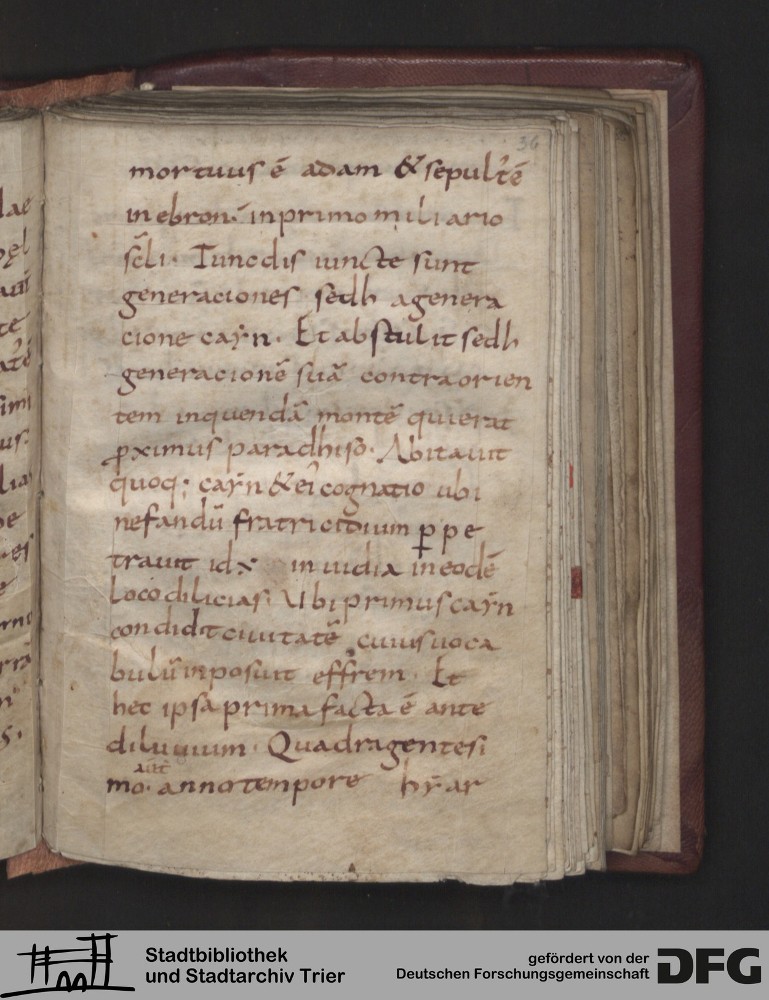 36
mortuus ē adam & sepult ē
in ebron· in primo miliario
scli· Tunc dis iuncte sunt
generaciones sedh a genera
cione caẏn· Et abstulit sedh
generacionē suā contra orien
tem in quendā montē qui erat
ꝓximus paradhiso· Abitauit
quoq; caẏn & ei cognatio ubi
nefandū fratricidium ꝑpe
trauit id× inuidia in eodē
loco dilicias· Ubi primus caẏn
condidit ciuitatē cuius uoca
bulū inposuit effrem· Et
hec ipsa prima facta ē ante
diluuium· Quadragentesi
mo· autē anno tempore hẏar
Stadtbibliothek
und Stadtarchiv Trier
gefördert von der
Deutschen Forschungsgemeinschaft
DFG